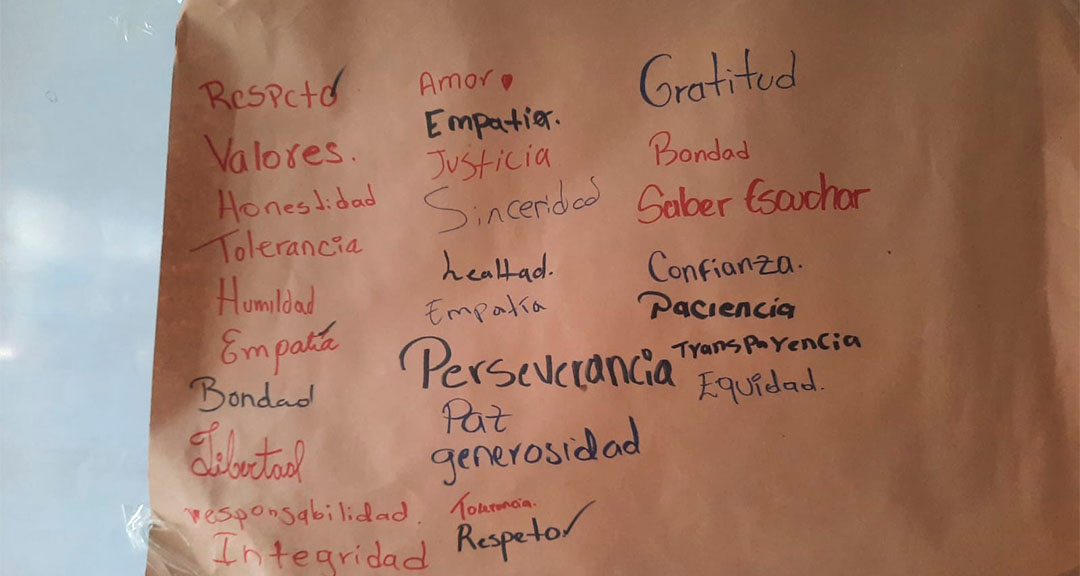 Respeto
Valores.
Honestidad
Tolerancia
Humildad
Empatía
Bondad
Libertad
responsabilidad.
Integridad
Amor
Empatia.
Justicia
Sinceridad
Lealtad.
Empatía
Perseverancia
Paz
generosidad
Tolerancia.
Respeto
Gratitud
Bondad
Saber Escuchar
Confianza.
Paciencia
Transparencia
Equidad.